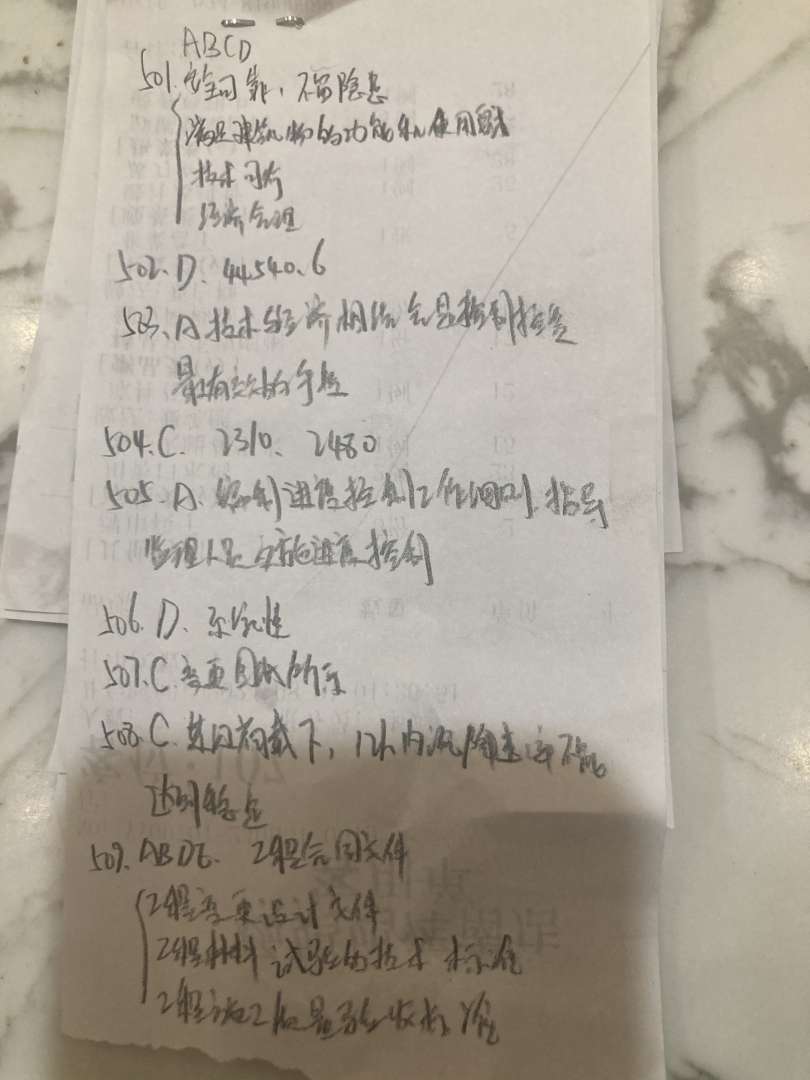 ABCD
501. 安全可靠，不留隐患
满足建筑物的功能和使用要求
技术可行
经济合理
502. D. 44540.6
503. A 技术与经济相结合是控制投资
最有效的手段
504. C. 2310、2480
505. A. 编制进度控制工作细则，指导
监理人员实施进度控制
506. D. 系统性
507. C. 变更图纸所示
508. C. 某级荷载下，12h内沉降速率不能
达到稳定
509. ABDE. 工程合同文件
工程变更设计文件
工程材料试验的技术标准
工程施工质量验收标准